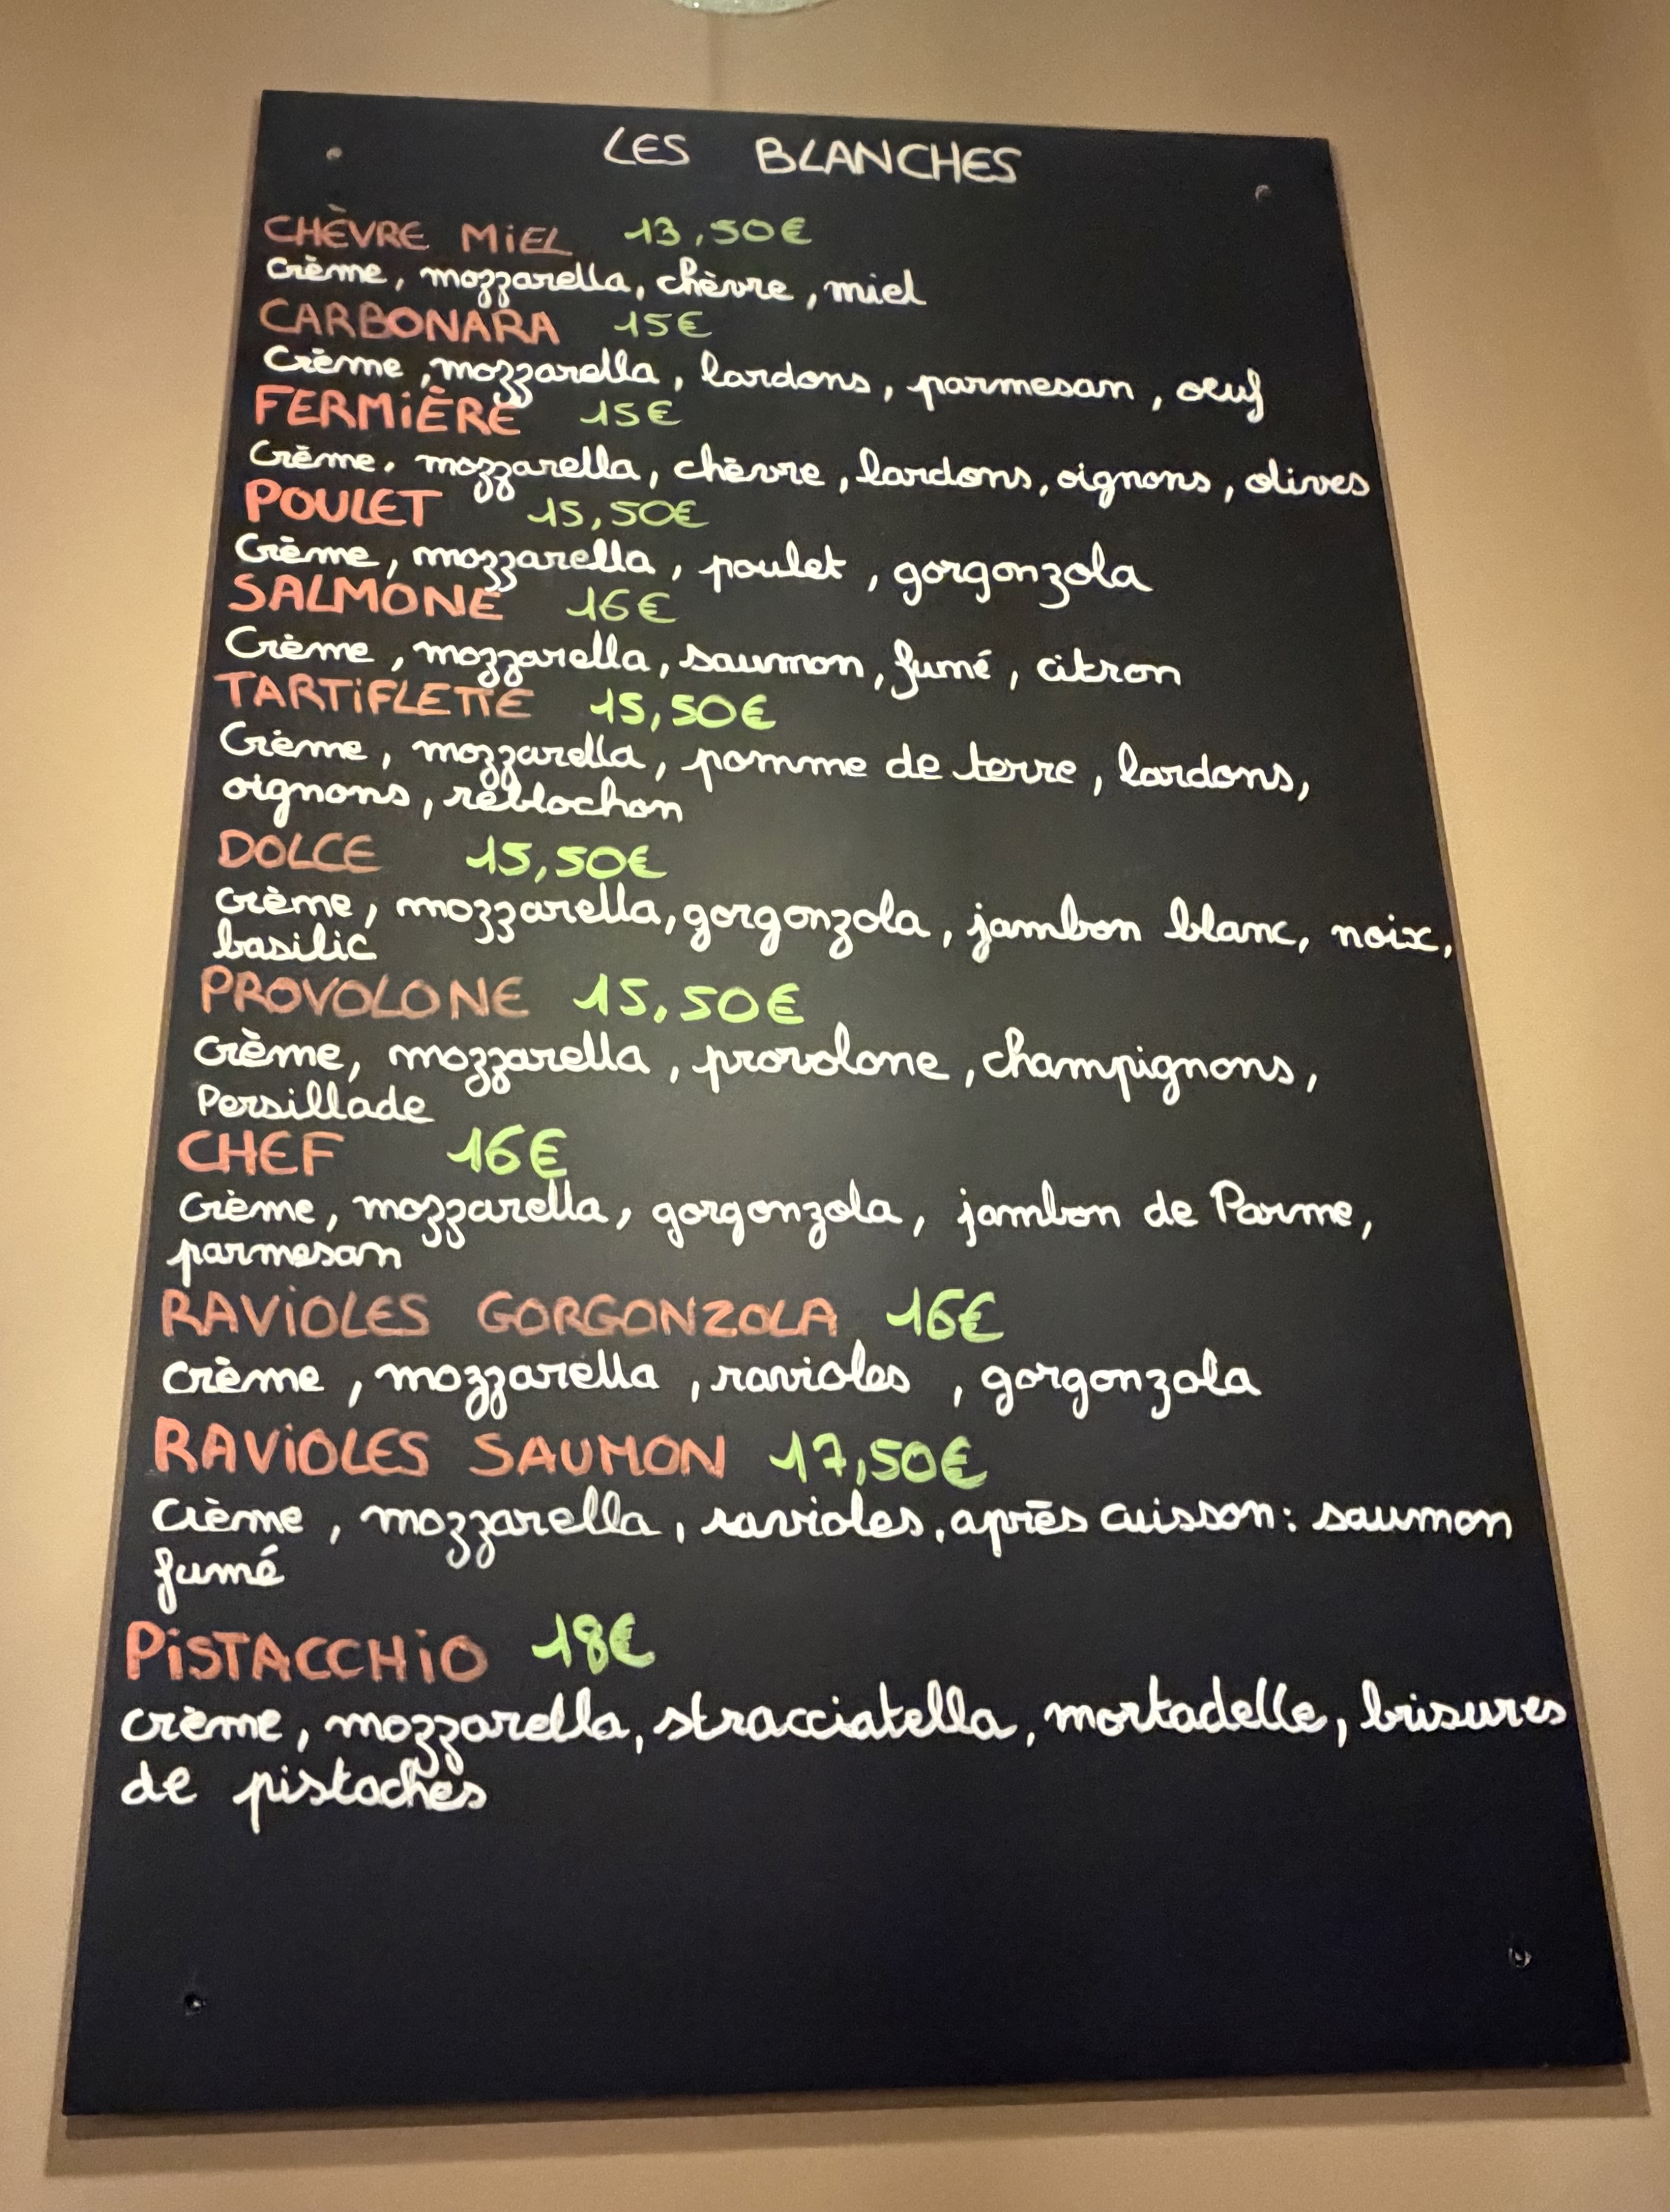 LES BLANCHES
CHÈVRE MiEL 13,50€
Crème, mozzarella, chèvre, miel
CARBONARA 15€
Crème, mozzarella, lardons, parmesan, oeuf
FERMiÈRE 15€
Crème, mozzarella, chèvre, lardons, oignons, olives
POULET 15,50€
Crème, mozzarella, poulet, gorgonzola
SALMONE 16€
Crème, mozzarella, saumon, fumé, citron
TARTiFLETTE 15,50€
Crème, mozzarella, pomme de terre, lardons,
oignons, réblochon
DOLCE 15,50€
crème, mozzarella, gorgonzola, jambon blanc, noix,
basilic
PROVOLONE 15,50€
crème, mozzarella, provolone, champignons,
Persillade
CHEF 16€
crème, mozzarella, gorgonzola, jambon de Parme,
parmesan
RAViOLES GORGONZOLA 16€
crème, mozzarella, ravioles, gorgonzola
RAViOLES SAUMON 17,50€
crème, mozzarella, ravioles, après cuisson: saumon
fumé
PiSTACCHiO 18€
crème, mozzarella, stracciatella, mortadelle, brisures
de pistaches